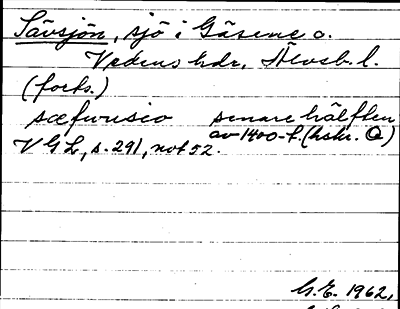 Sävsjön, sjö i Gäsene o.
Vedens hdr, Älvsb. l.
(forts.)
sæfwusio senare hälften
av 1400-t. (hskr. O)
VGL, s. 291, not 52.
G.E. 1962,